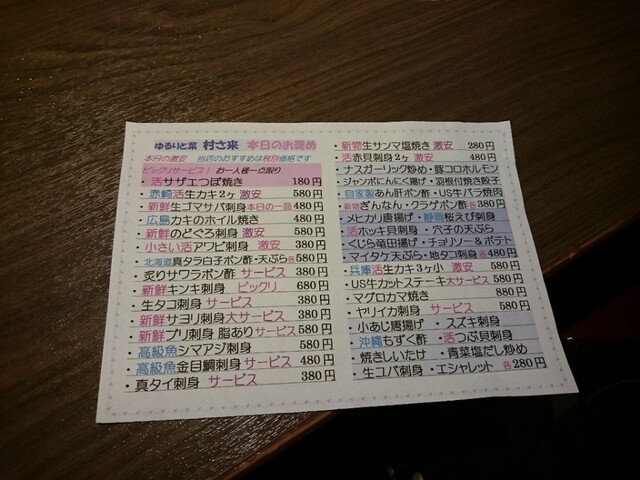 ゆるりと菜 村さ来 本日のお奨め
本日の激安 当店のおすすめは税別価格です
ビックリサービス! お一人様一点限り
・活サザエつぼ焼き 180円
・赤崎活生カキ2ヶ 激安 580円
・新鮮生ゴマサバ刺身本日の一品 480円
・広島カキのホイル焼き 480円
・新鮮のどぐろ刺身 激安 580円
・小さい活アワビ刺身 激安 380円
・北海道真タラ白子ポン酢・天ぷら各580円
・炙りサワラポン酢 サービス 380円
・新鮮キンキ刺身 ビックリ 680円
・生タコ刺身 サービス 380円
・新鮮サヨリ刺身大サービス 380円
・新鮮ブリ刺身 脂ありサービス 580円
・高級魚シマアジ刺身 580円
・高級魚金目鯛刺身 サービス 480円
・真タイ刺身 サービス 380円
・新物生サンマ塩焼き 280円
・活赤貝刺身2ヶ 激安 480円
・ナスガーリック炒め・豚コロホルモン
・ジャンボにんにく揚げ・羽根付焼き餃子
・自家製あん肝ポン酢・US牛バラ焼肉
・新物ぎんなん・クラゲポン酢 各380円
・メヒカリ唐揚げ・静岡桜えび刺身
・活ホッキ貝刺身・穴子の天ぷら
・くじら竜田揚げ・チョリソー&ポテト
・マイタケ天ぷら・地タコ刺身 各480円
・兵庫活生カキ3ヶ小 激安 580円
・US牛カットステーキ大サービス 580円
・マグロカマ焼き 880円
・ヤリイカ刺身 サービス 580円
・小あじ唐揚げ ・スズキ刺身
・沖縄もずく酢 ・活つぶ貝刺身
・焼きしいたけ ・青菜塩だし炒め
・生コバ刺身・エシャレット 各280円